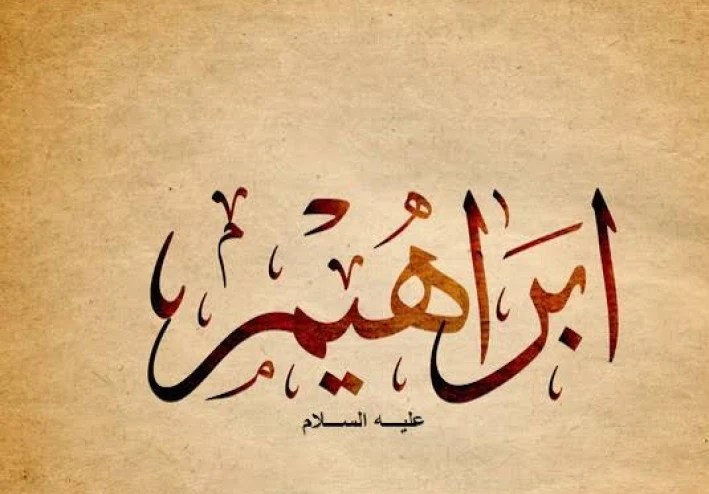 ابراهيم
عليه السلام